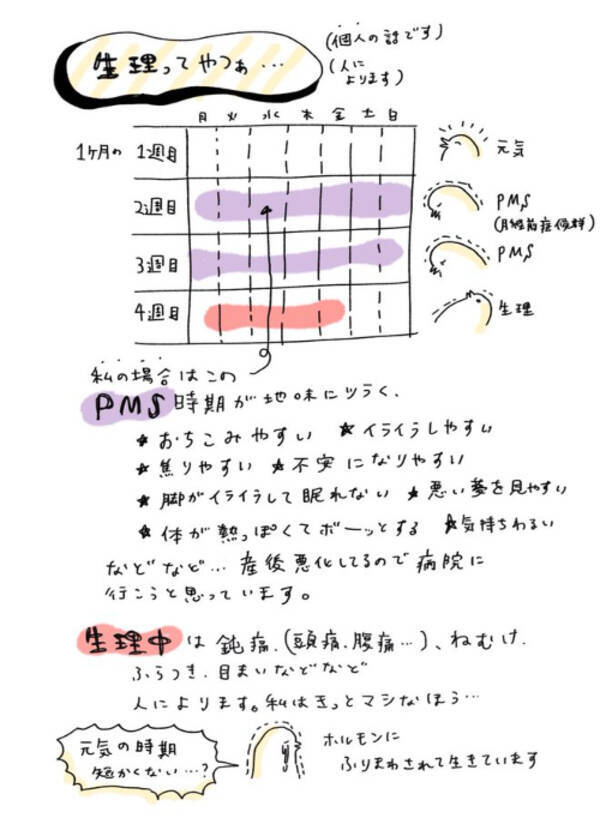 生理ってやつぁ…
(個人の話です)
(人に
よります)
月 火 水 木 金 土 日
1ヶ月の 1週目 元気
2週目 PMS
(月経前症候群)
3週目 PMS
4週目 生理
私の場合はこの
PMS時期が地味にツラく、
★おちこみやすい ★イライラしやすい
★焦りやすい ★不安になりやすい
★脚がイライラして眠れない ★悪い夢を見やすい
★体が熱っぽくてボーッとする ★気持ちわるい
などなど… 産後悪化してるので病院に
行こうと思っています。
生理中は鈍痛、(頭痛、腹痛…)、ねむけ、
ふらつき、目まいなどなど
人によります。私はきっとマシなほう…
元気の時期
短かくない…?
ホルモンに
ふりまわされて生きています